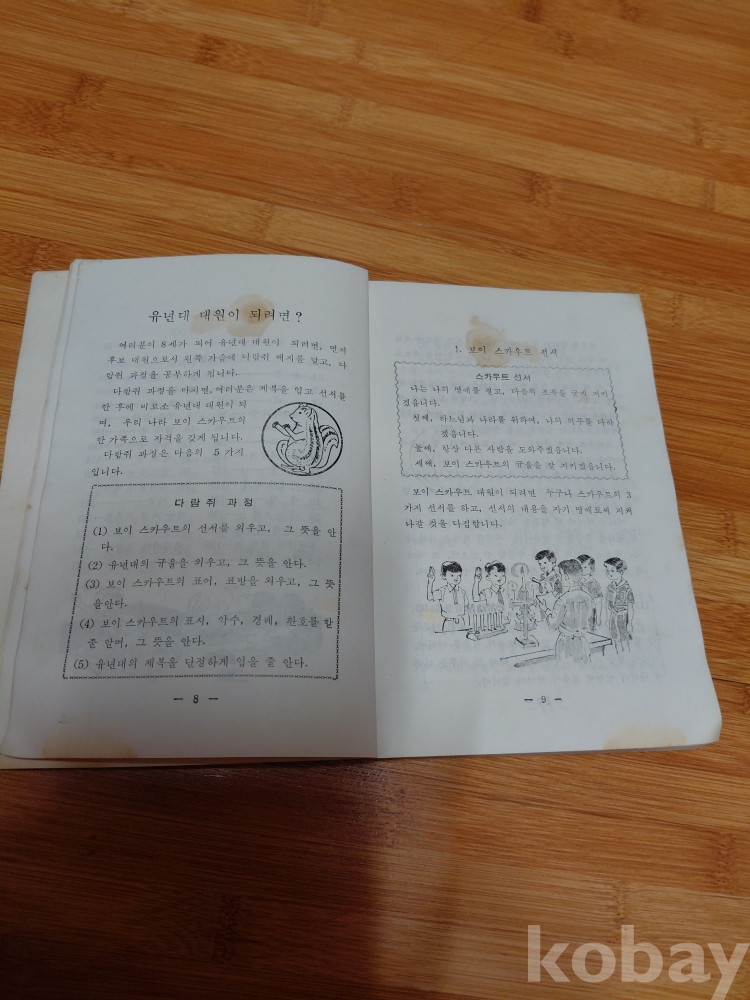 유년대 대원이 되려면?
여러분이 8세가 되어 유년대 대원이 되려면, 먼저
후보 대원으로서 왼쪽 가슴에 다람쥐 배지를 달고, 다
람쥐 과정을 공부하게 됩니다.
다람쥐 과정을 마치면, 여러분은 제복을 입고 선서를
한 후에 비로소 유년대 대원이 되
며, 우리 나라 보이 스카우트의
한 가족으로 자격을 갖게 됩니다.
다람쥐 과정은 다음의 5 가지
입니다.
다람쥐 과정
(1) 보이 스카우트의 선서를 외우고, 그 뜻을 안
다.
(2) 유년대의 규율을 외우고, 그 뜻을 안다.
(3) 보이 스카우트의 표어, 표방을 외우고, 그 뜻
을안다.
(4) 보이 스카우트의 표시, 악수, 경례, 환호를 할
줄 알며, 그 뜻을 안다.
(5) 유년대의 제복을 단정하게 입을 줄 안다.
— 8 —
1. 보이 스카우트 선서
스카우트 선서
나는 나의 명예를 걸고, 다음의 조목을 굳게 지키
겠읍니다.
첫째, 하느님과 나라를 위하여, 나의 의무를 다하
겠읍니다.
둘째, 항상 다른 사람을 도와주겠읍니다.
세째, 보이 스카우트의 규율을 잘 지키겠읍니다.
보이 스카우트 대원이 되려면 누구나 스카우트의 3
가지 선서를 하고, 선서의 내용을 자기 명예로써 지켜
나갈 것을 다짐합니다.
— 9 —
kobay